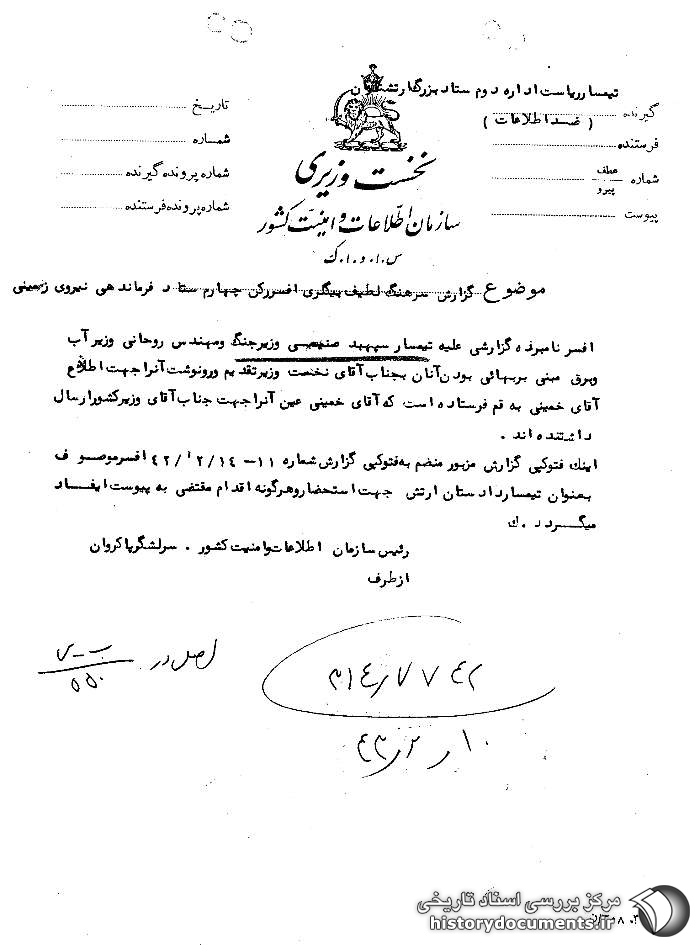 تیمسار ریاست اداره دوم ستاد بزرگ ارتشتاران
گیرنده
( ضد اطلاعات )
فرستنده
شماره عطف پیرو
پیوست
تاریخ
شماره
شماره پرونده گیرنده
شماره پرونده فرستنده
نخست وزیری
سازمان اطلاعات و امنیت کشور
س.ا.و.ا.ک
موضوع گزارش سرهنگ لطیف بیگلری افسر رکن چهارم ستاد فرماندهی نیروی زمینی
افسر نامبرده گزارشی علیه تیمسار سپهبد صنیعی وزیر جنگ و مهندس روحانی وزیر آب
وبرق مبنی بر بهائی بودن آنان بجناب آقای نخست وزیر تقدیم و رونوشت آنرا جهت اطلاع
آقای خمینی به قم فرستاده است که آقای خمینی عین آنرا جهت جناب آقای وزیر کشور ارسال
داشتنده اند .
اینک فتوکپی گزارش مزبور منضم به فتوکپی گزارش شماره ۱۱-۴۲/۱۲/۱۴ افسر موصوف
بعنوان تیمسار دادستان ارتش جهت استحضار و هرگونه اقدام مقتضی به پیوست ایفاد
میگردد . ك
رئیس سازمان اطلاعات وامنیت کشور . سرلشگر پاکروان
از طرف
اصل در
۵۵۰
۳۱۴/۷۷۴۲
۴۳/۲/۱۰
مرکز بررسی اسناد تاریخی
historydocuments.ir